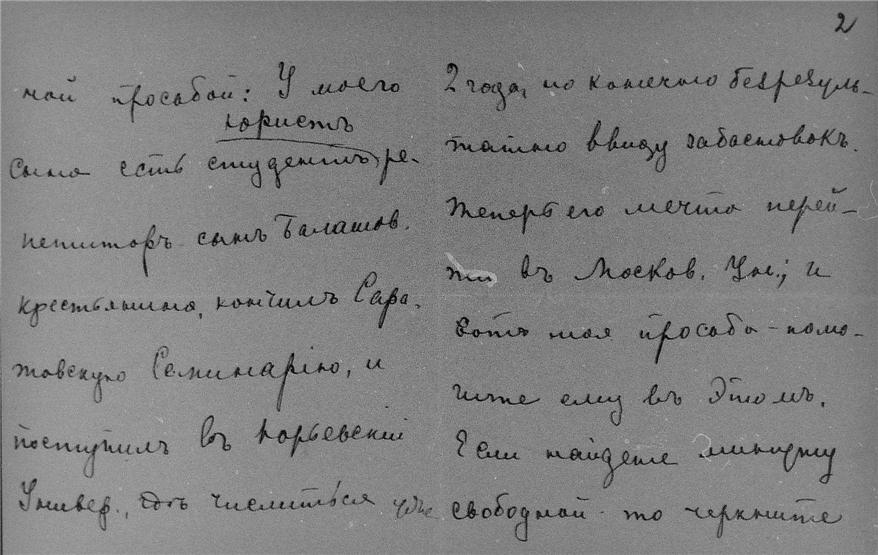 2
ной просьбой: У моего
юристъ
сына есть студентъ ре-
петиторъ сынъ Балашов.
крестьянина, кончилъ Сара-
товскую Семинарію, и
поступилъ въ Юрьевскій
Универ., гдѣ числиться уже
2 года, но конечно безрезуль-
татно ввиду забастовокъ.
Теперь его мечта перей-
ти въ Москов. Ун.; и
вотъ моя просьба - помо-
гите ему въ этомъ.
Если найдете минутку
свободной - то черкните